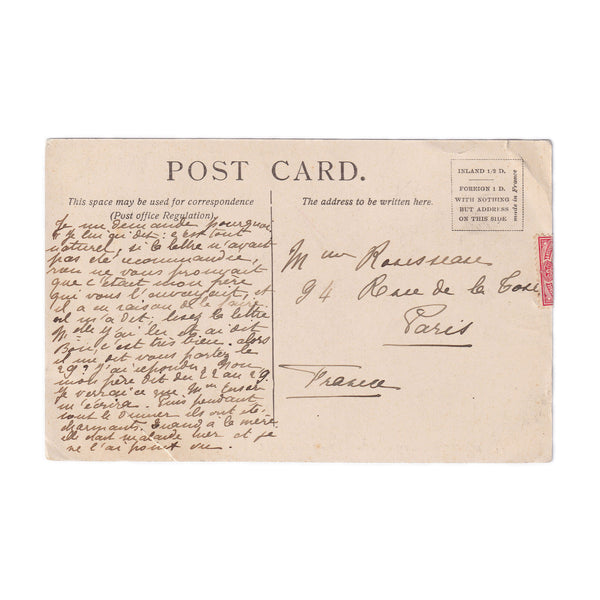 POST CARD.
This space may be used for correspondence
(Post office Regulation)
The address to be written here.
INLAND 1/2 D.
FOREIGN 1 D.
WITH NOTHING
BUT ADDRESS
ON THIS SIDE
made in France
Je me demande pourquoi
lui qui dit: c'est tout
naturel, si la lettre n'avait
pas été recommandée,
rien ne vous prouvait
que c'était mon père
qui vous l'envoyait, et
il a eu raison de le faire
il m'a dit: lisez la lettre
je l'ai lu et ai dit
Bon, c'est très bien. alors
il me dit vous partez le
29? J'ai répondu Non
mon père dit du 22 au 29.
Je verrai ce que Mme
m'écrira. Puis pendant
tout le dinner ils ont été
charmants. Quand à la mère
elle était malade hier et je
ne l'ai point vu.
Mme
94 Rue de la
Paris
France